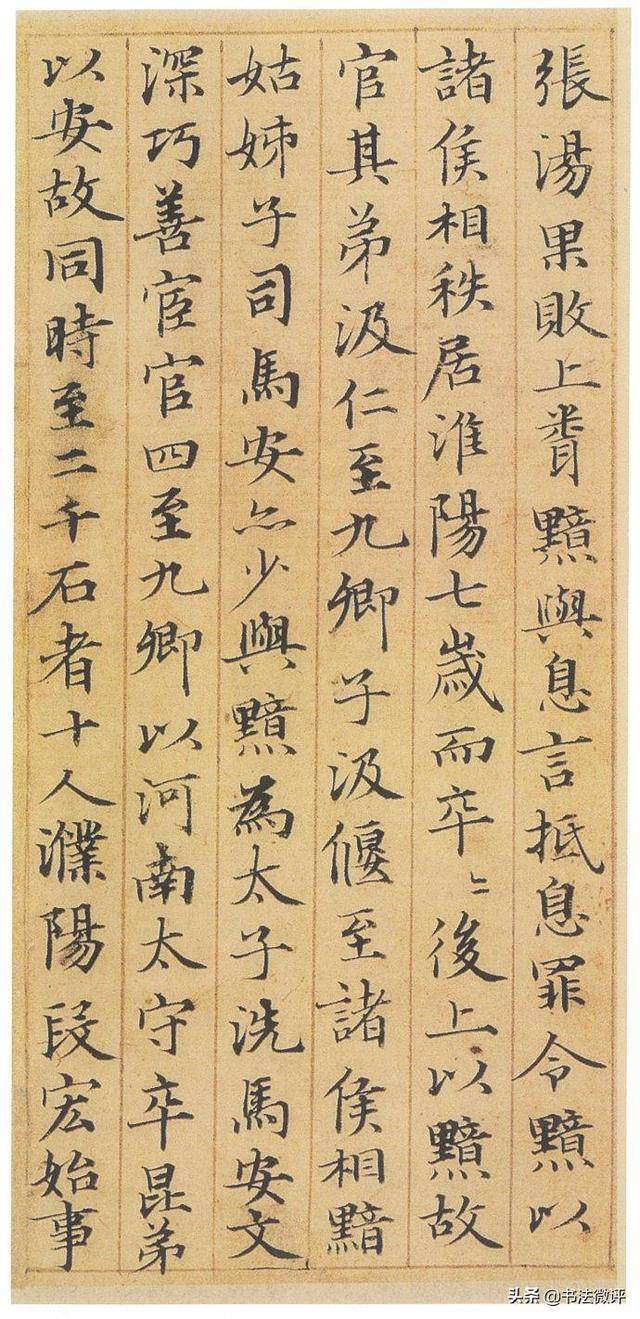 張湯果敗上聞黯與息言抵息罪令黯以
諸侯相秩居淮陽七歲而卒〻後上以黯故
官其弟汲仁至九卿子汲偃至諸侯相黯
姑姊子司馬安亦少與黯為太子洗馬安文
深巧善宦官四至九卿以河南太守卒昆弟
以安故同時至二千石者十人濮陽段宏始事
头条 @书法微评